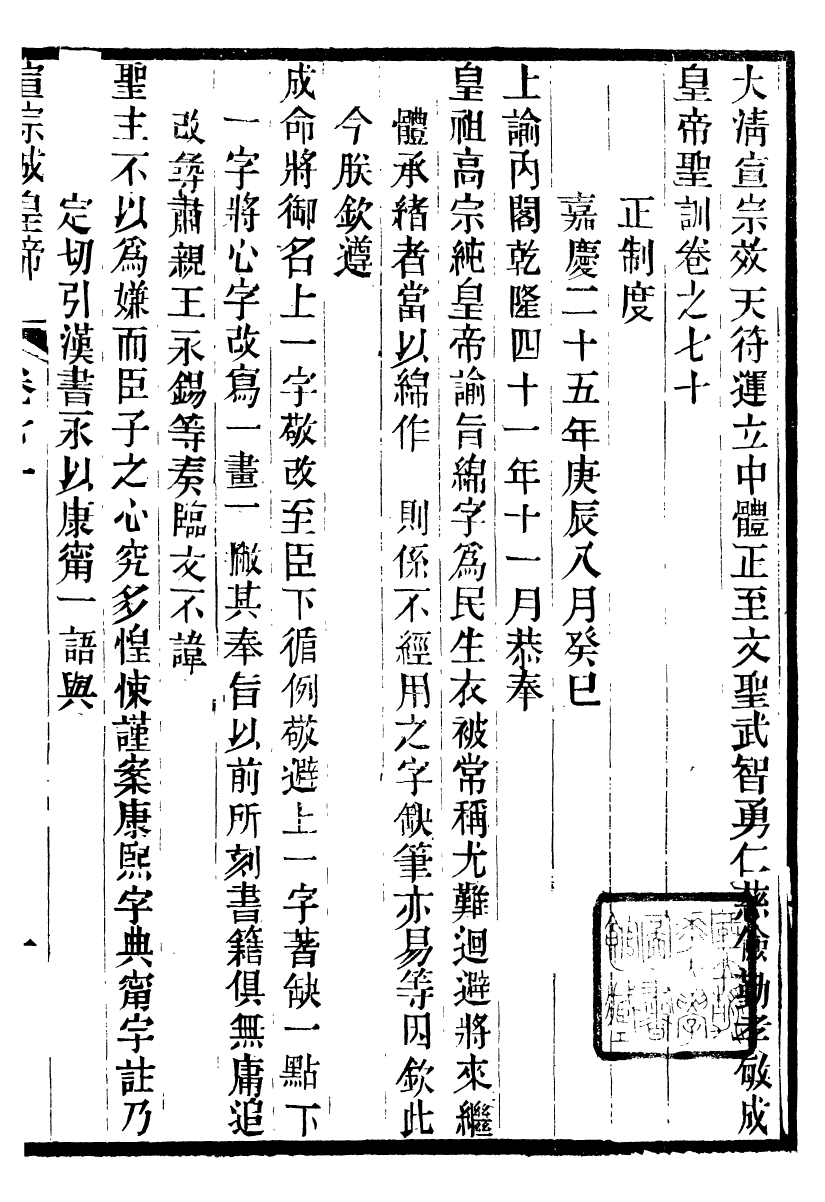 大淸宣宗效天符運立中體正至文聖武智勇仁慈儉勤孝敏成
皇帝聖訓卷之七十
正制度
嘉慶二十五年庚辰八月癸巳
上諭內閣乾隆四十一年十一月恭奉
皇祖高宗純皇帝諭旨綿字爲民生衣被常稱尤難迴避將來繼
體承緒者當以綿作　則係不經用之字缺筆亦易等因欽此
今朕欽遵
成命將御名上一字敬改至臣下循例敬避上一字著缺一點下
一字將心字改寫一畫一撇其奉旨以前所刻書籍俱無庸追
改彝肅親王永錫等奏臨文不諱
聖主不以爲嫌而臣子之心究多惶悚謹案康熙字典甯字註乃
定切引漢書永以康甯一語與
宣宗成皇帝